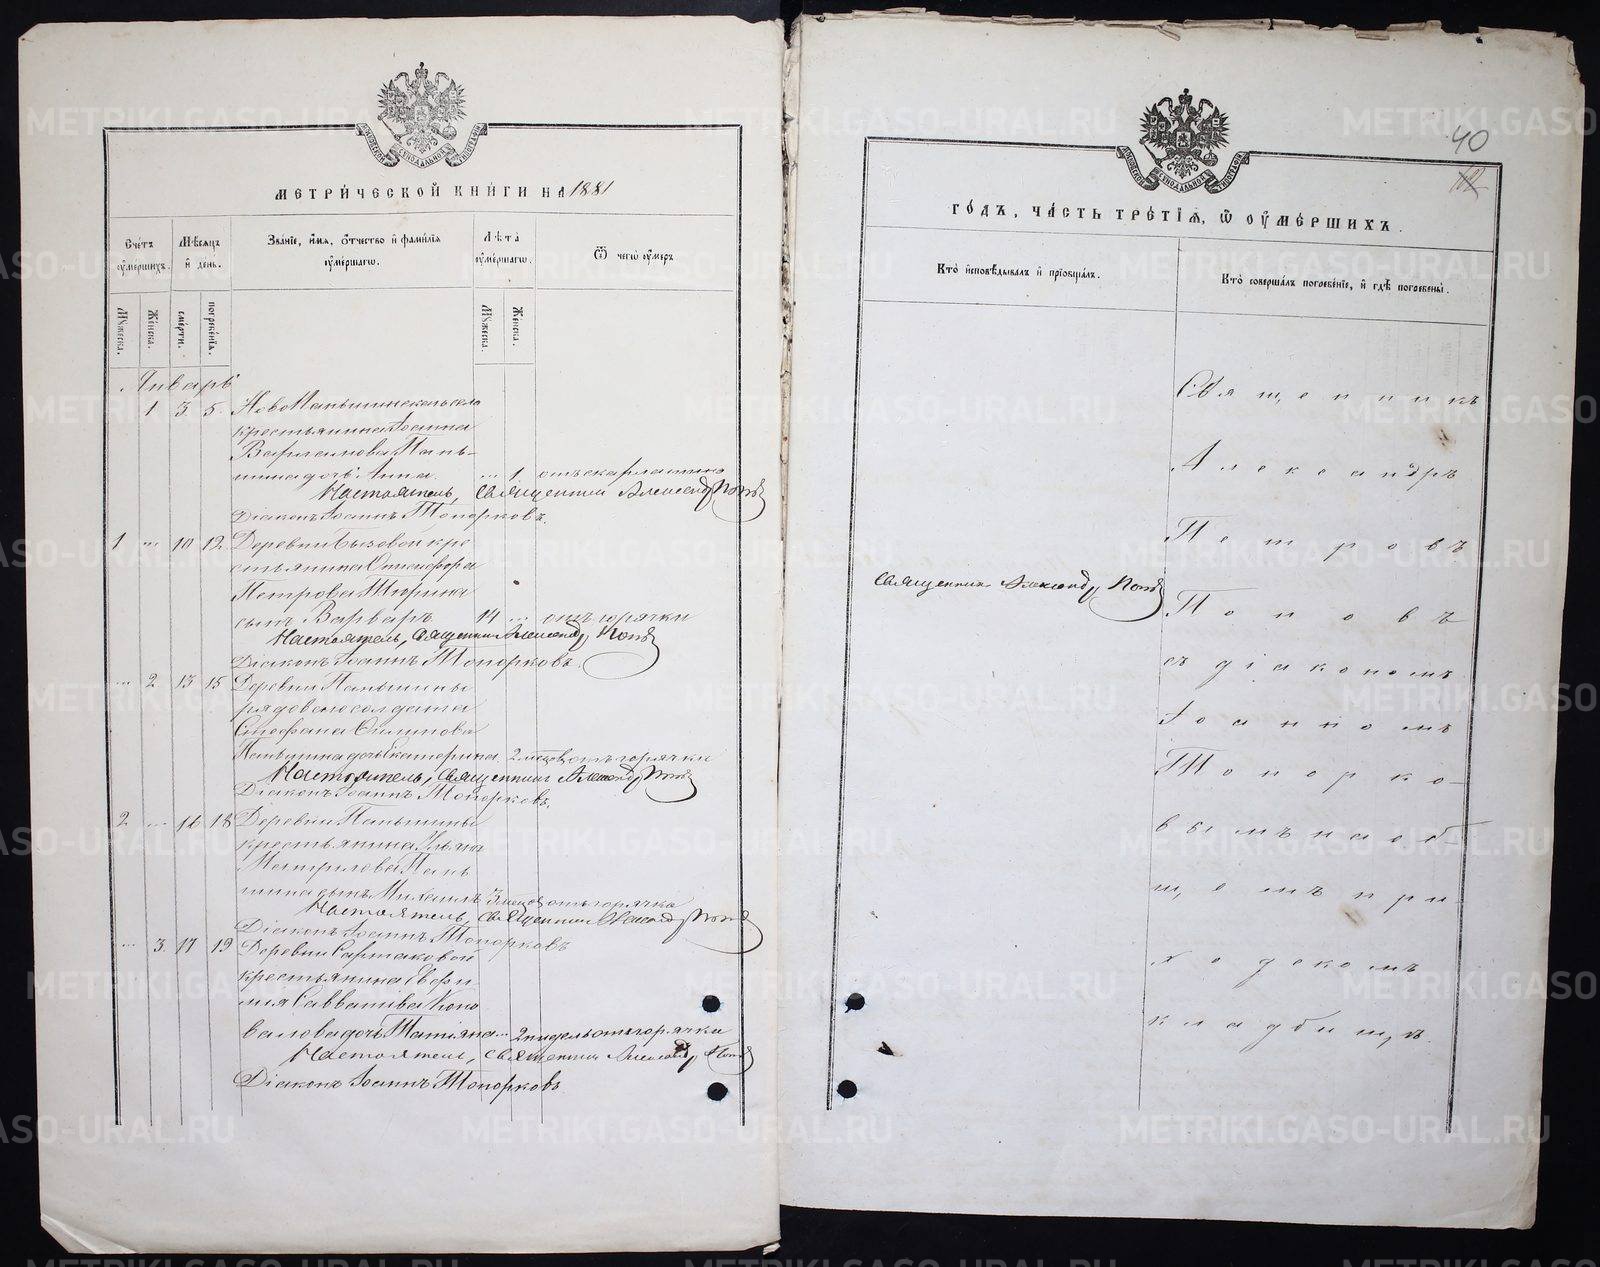 МЕТРИ́ЧЕСКОЙ КНИ́ГИ НА 1881
Сче́тъ оу҆ме́ршихъ.
Мѣ́сяцъ и҆ де́нь.
Зва́нїе, и҆́мѧ, ѻ҆́тчество и҆ фами́лїѧ оу҆ме́ршагѡ.
Лѣ́та оу҆ме́ршагѡ.
Ѿ чегѡ̀ оу҆́меръ
Мꙋ́жеска.
Же́нска.
сме́рти.
погребе́нїѧ.
Мꙋ́жеска.
Же́нска.
Январь
1 3. 5. НовоПаньшинскаго села
крестьянина Іоанна
Варламова Пань-
шина дочь Анна. ... 1 отъ скарлатины
Настоятель, Священникъ Александръ Поповъ
Діаконъ Іоаннъ Топорковъ.
1 ... 10 12. Деревни Бызовой кре
стьянина Онисифора
Петрова Тюрина
сынъ Варваръ 14 ... отъ горячки
Настоятель, Священникъ Александръ Поповъ
Діаконъ Іоаннъ Топорковъ.
... 2. 13 15 Деревни Паньшины
рядоваго солдата
Стефана Филипова
Паньшина дочь Екатерина. 2 месяцовъ отъ горячки
Настоятель, Священникъ Александръ Поповъ
Діаконъ Іоаннъ Топорковъ.
2 ... 16 18 Деревни Паньшины
крестьянина Ульяна
Матрилова Пань
шина сынъ Михаилъ 3 месяцовъ отъ горячки
Настоятель, Священникъ Александръ Поповъ
Діаконъ Іоаннъ Топорковъ
... 3. 17 19 Деревни Сартаковой
крестьянина Евфи
мія Савватіева Коно
валова дочь Татіана ... 2 недель отъ горячки
Настоятель, Священникъ Александръ Поповъ
Діаконъ Іоаннъ Топорковъ.
40
ГО́ДЪ, ЧА́СТЬ ТРЕ́ТІѦ, Ѡ҆ ОУ҆МЕ́РШИХЪ.
Кто̀ и҆сповѣ́дывалъ и҆ прїѡбща́лъ.
Кто̀ соверша́лъ погребе́нїе, и҆ гдѣ̀ погребены̀.
Священникъ
Александръ
Петровъ
Священникъ Александръ Поповъ
Поповъ
съ діакономъ
Іоанномъ
Топорко-
вымъ на об-
щемъ при-
ходскомъ
кладбищѣ.